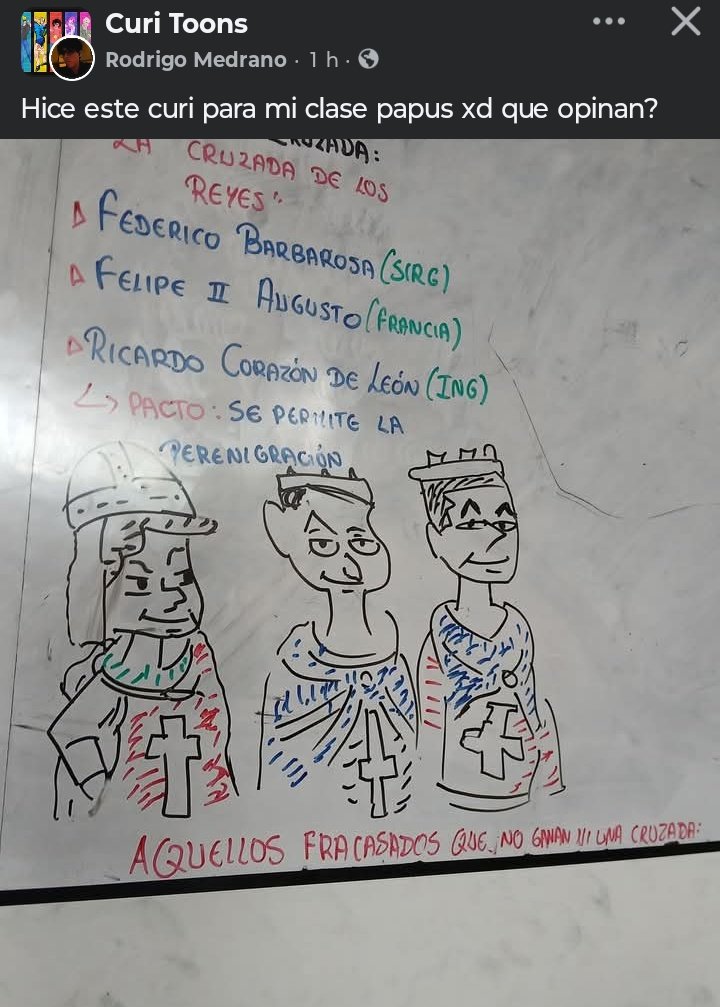 Curi Toons
Rodrigo Medrano · 1 h ·
Hice este curi para mi clase papus xd que opinan?
CRUZADA:
LA CRUZADA DE LOS
REYES"
FEDERICO BARBAROSA (SIRG)
FELIPE II AUGUSTO (FRANCIA)
RICARDO CORAZÓN DE LEÓN (ING)
PACTO: SE PERMITE LA
PERENIGRACIÓN
AQUELLOS FRACASADOS QUE NO GANAN NI UNA CRUZADA: